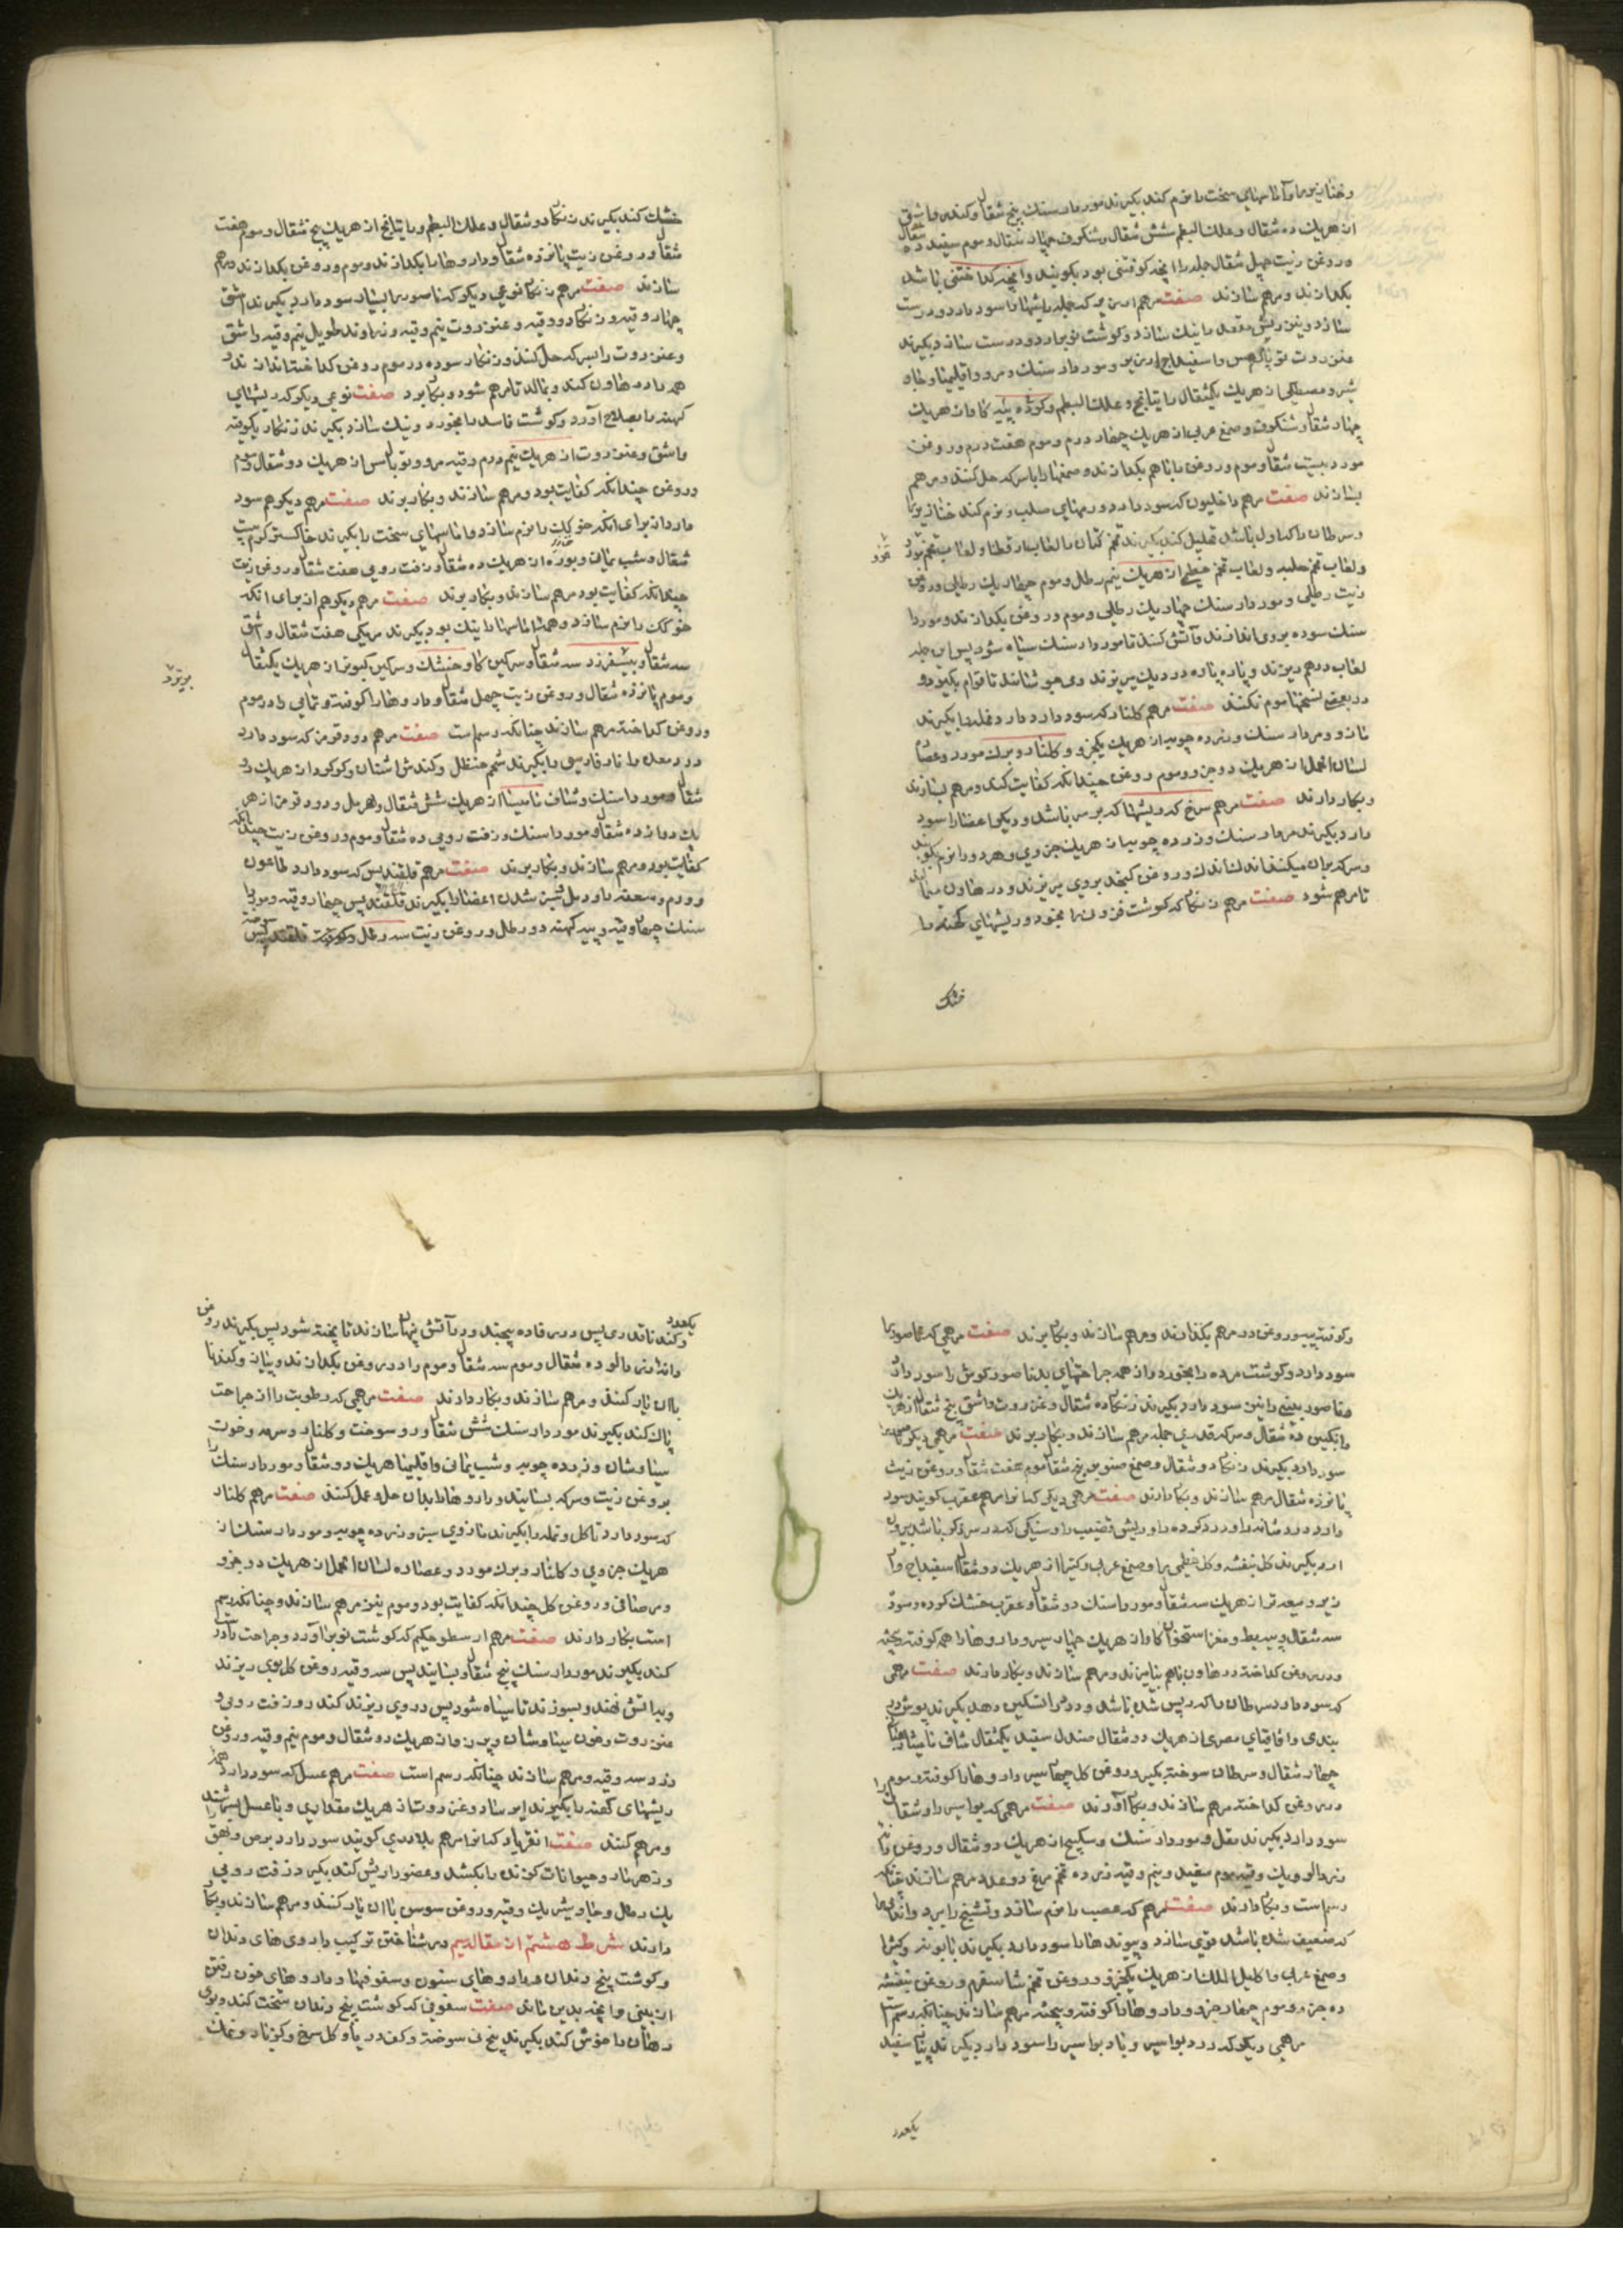 و خنازیر را و آماسهای سخت را نرم کند بکیرند موردار سنك پنج مثقال و کندر و اشق
از هریك ده مثقال و علك البطم شش مثقال و شنکرف چهار مثقال و موم سفید ده مثقال
و روغن زیت چهل مثقال جمله را آنچه کوفتنی بود بکوبند و آنچه کداختنی باشد
بکدازند و مرهم سازند صفت مرهم که جمله ریشها را سود دارد و درست
سازد و نیز ریش مقعد را نیك سازد و کوشت نو برارد و درست سازد بکیرند
عنزروت توبال مس و اسفیداج ارزیز و موردار سنك و مرو و اقلیمیا و جاو
شیر و مصطکی از هریك یکمثقال راتیانج و علك البطم و کوزه پیه کاو از هریك
چهار مثقال شنکرف و صمغ عربی از هریك چهار درم و موم هفت درم و روغن
مورد بیست مثقال و موم و روغن را باهم بکدازند و صمغها را با سرکه حل کنند و مرهم
بسازند صفت مرهم داخلیون که سود دارد ورمهای صلب و نرم کند خنازیر را
و سرطان را که اول باشد تحلیل کند بکیرند تخم کتان و لعاب بزرقطونا و لعاب تخم مرو
ولعاب تخم حلبه ولعاب تخم خطمی از هریك نیم رطل و موم چهار یك رطلی و روغن
زیت رطلی و موردار سنك چهار یك رطلی و موم و روغن بکدازند و موردار
سنك سوده بروی اندازند و آتش کنند تا موردار سنك سیاه شود پس این جمله
لعاب درهم ریزند و پاره پاره در دیك میریزند و می جوشانند تا قوام بکیرد و
در بعضی نسخها موم نکنند صفت مرهم کلنار که سود دارد مار و نمله را بکیرند
مازو و مردار سنك و زرده چوبه از هریك یکجزو و کلنار و برك مورد و عصارۀ
لسان الحمل از هریك دو جزو و موم روغن چندانکه کفایت کند و مرهم بسازند
و بکار دارند صفت مرهم سرخ که ریشها که بر سر باشد و دیکر اعضا را سود
دارد بکیرند مردار سنك و زرده چوبه از هریك جزوی و هر دو را نرم بکوبند
و سرکه بران میکنند اندك اندك و روغن کنجد بروی میریزند و در هاون میمالند
تا مرهم شود صفت مرهم زنکار که کوشت فزونی را بخورد و ریشهای کهنه را
خشك
خشك کند بکیرند زنکار دو مثقال و علك البطم و راتیانج از هریك پنج مثقال و موم هفت
مثقال و روغن زیت پانزده مثقال و داروها را بکدازند و موم و روغن بکدازند و مرهم
سازند صفت مرهم زنکار نوعی دیکر که ناصور را بسیار سود دارد بکیرند اشق
چهار وقیه و زنکار دو وقیه و عنزروت نیم وقیه و زراوند طویل نیم وقیه و اشق
و عنزروت را بسرکه حل کنند و زنکار سوده در موم روغن کداخته اندازند و
همه را در هاون کنند و بمالند تا مرهم شود و بکار برند صفت نوعی دیکر که ریشهای
کهنه را بصلاح آورد و کوشت فاسد را بخورد و نیك سازد بکیرند زنکار یکوقیه
و اشق و عنزروت از هریك نیم درم وقیه مرو و توبال مس از هریك دو مثقال و موم
و روغن چندانکه کفایت بود و مرهم سازند و بکار برند صفت مرهم دیکر هم سود
دارد از برای آنکه خوکك را نرم سازد و اماسهای سخت را بکیرند خاکستر کرم بیست
مثقال و شب یمانی و بوره از هریك ده مثقال و زفت رومی هفت مثقال و روغن زیت
چندانکه کفایت بود مرهم سازند و بکار برند صفت مرهم دیکر هم از برای آنکه
خوکك را نرم سازد و همه اماسها را نیك بود بکیرند مریکی هفت مثقال و اشق
سه مثقال و سرکین کاو خشك و سرکین کبوتر از هریك یکمثقال
و موم پانزده مثقال و روغن زیت چهل مثقال و داروها را کوفته و تمامی را در موم
و روغن کداخته مرهم سازند چنانکه رسم است صفت مرهم دوو قومن که سود دارد
درد معده را نار فارسی را بکیرند شحم حنظل و کندش اشنان و کوکرد از هریك دو
مثقال مورد داسنك و شاف مامیثا از هریك شش مثقال
یك دوازده مثقال و موردا سنك و زفت رومی ده مثقال و موم و روغن زیت چندانکه
کفایت بود و مرهم سازند و بکار برند صفت مرهم قلقندیس که سود دارد طاعون
و ورم و سعفه را و دمل اعضا را بکیرند قلقندیس چهار وقیه و موردا
سنك چهار وقیه و پیه کهنه دو رطل و روغن زیت سه رطل
و کوفته بیزند و روغن در مرهم بکدازند و مرهم سازند و بکار برند صفت مرهمی که ناصور را
سود دارد و کوشت مرده را بخورد و از همه جراحتهای بد ناصور کوش را سود دارد
و ناصور بینی را نیز سود دارد بکیرند زنکار ده مثقال و عنزروت و اشق پنج مثقال از هریك
و انکبین ده مثقال و سرکه قدری جمله مرهم سازند و بکار برند صفت مرهمی دیکر ناصور را
سود دارد بکیرند زنکار دو مثقال و صمغ صنوبر پنج مثقال موم هفت مثقال و روغن زیت
پانزده مثقال مرهم سازند و بکار دارند صفت مرهمی دیکر که آنرا مرهم عقرب کویند سود
دارد درد مثانه را و درد کرده را و ریش قضیب را و سنکی که در مثانه باشد بیرون
ارد بکیرند کل بنفشه و کل خطمی را و صمغ عربی و کتیرا از هریك دو مثقال اسفیداج و ار
زیز و میعه تر از هریك سه مثقال و مورداسنك دو مثقال و عقرب خشك کرده و سوده
سه مثقال و پیه بط و مغز استخوان کاو از هریك چهار سیر و داروها را همه کوفته بیخته
و در روغن کداخته در هاون باهم بیامیزند و مرهم سازند و بکار دارند صفت مرهمی
که سود دارد سرطان را که ریش شده باشد و درد را تسکین دهد بکیرند پوش در
بندی و اقاقیای مصری از هریك دو مثقال صندل سفید یکمثقال شاف مامیثا
چهار مثقال و سرطان سوخته بکیر و روغن کل چهار سیر داروها را کوفته و موم را
در روغن کداخته مرهم سازند و بکار آورند صفت مرهمی که بواسیر را و شقاق را
سود دارد بکیرند مقل و موردار سنك و سکبینج از هریك دو مثقال و روغن
زرد آلو و یك وقیه موم سفید و نیم وقیه زرده تخم مرغ دو عدد مرهم سازند چنانکه
رسم است و بکار دارند صفت مرهم که عصب را نرم سازد و تشنج را ببرد و اندامها
که ضعیف شده باشد قوی سازد و پیوندها را سود دارد بکیرند بابونه و کتیرا
و صمغ عربی و اکلیل الملك از هریك یکجزو و روغن تخم شاسفرم و روغن بنفشه
ده جزو و موم چهار جزو و داروها را کوفته و بیخته مرهم سازند چنانکه رسم است
مرهمی دیکر که درد بواسیر و باد بواسیر را سود دارد بکیرند پیاز سفید
یکعدد
یکعدد و کنند تا قدری پس در رفاده پیچند و در آتش پنهان سازند تا پخته شود پس بکیرند روغن
دانه زردالو ده مثقال و موم سه مثقال و موم را در روغن بکدازند و پیاز و کندنا
باان یار کنند و مرهم سازند و بکار دارند صفت مرهمی که رطوبت را از جراحت
پاك کند بکیرند موردار سنك شش مثقال و رو سوخت و کلنار و سرمه و خون
سیاوشان و زرده چوبه و شب یمانی و اقلیمیا هریك دو مثقال و موردار سنك را
بروغن زیت و سرکه بسایند و داروها را بدان حل و عمل کنند صفت مرهم کلنار
که سود دارد تاکل و نمله را بکیرند مازوی سبز و زرده چوبه و موردار سنك از
هریك جزوی و کلنار و برك مورد و عصاره لسان الحمل از هریك دو جزو
و مرصافی و روغن کل چندانکه کفایت بود و موم نیز مرهم سازند و چنانکه رسم
است بکار دارند صفت مرهم ارسطو حکیم که کوشت نو برآورد و جراحت را درست
کند بکیرند موردار سنك پنج مثقال و بسایند پس سه وقیه روغن کل بروی ریزند
و بر آتش نهند و بسوزند تا سیاه شود پس در وی ریزند کندر و زفت رومی و
عنزروت و خون سیاوشان و بیرزد از هریك دو مثقال و موم نیم وقیه و روغن
زرد سه وقیه و مرهم سازند چنانکه رسم است صفت مرهم عسل که سود دارد همه
ریشهای کهنه را بکیرند ایرسا و عنزروت از هریك مقداری و با عسل بسرشند
و مرهم کنند صفت انقردیا که آنرا مرهم بلادری کویند سود دارد برص و بهق
و زهر مار و حیوانات کزنده را بکشد و عضو را ریش کند بکیرد زفت رومی
یك رطل و جاوشیر یك وقیه و روغن سوسن باان یار کنند و مرهم سازند و بکار
دارند شرط هشتم از مقاله سیم در شناختن ترکیب داروی های دندان
و کوشت پنج دندان و داروهای سنون و سفوفها و داروهای خون رفتن
از بینی و آنچه بدین ماند صفت سفوفی که کوشت بیخ دندان سخت کند و بوی
دهان را خوش کند بکیرند بیخ نی سوخته و کف دریا و کل سرخ و کزنار و نمك